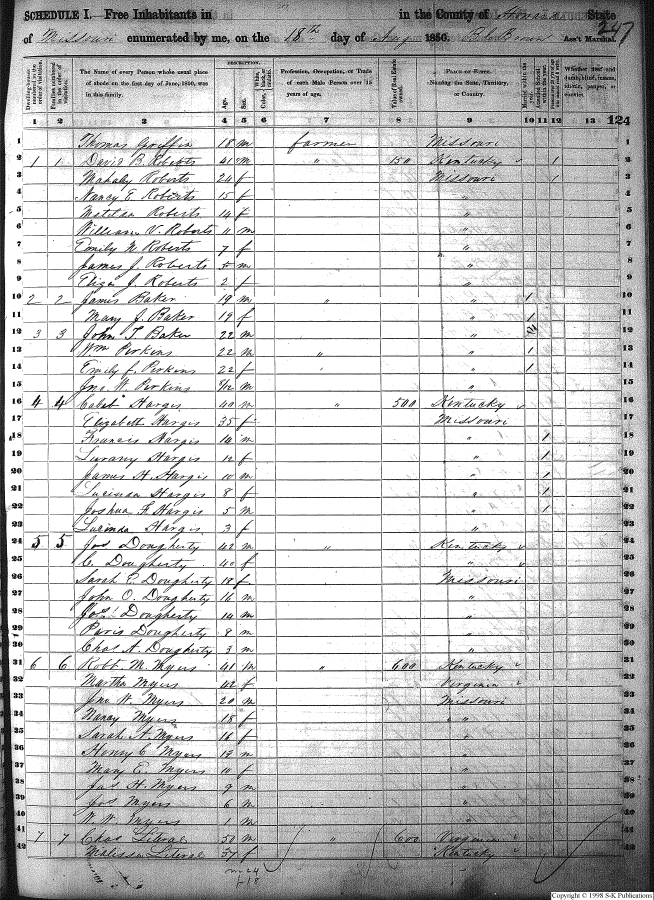 SCHEDULE I.—Free Inhabitants in in the County of State 247
of Missouri enumerated by me, on the 18th day of Aug 1850. Ass't Marshal.
Dwelling-houses numbered in the order of visitation.
Families numbered in the order of visitation.
The Name of every Person whose usual place of abode on the first day of June, 1850, was in this family.
DESCRIPTION.
Age.
Sex.
White, black, or mulatto.
Color,
Profession, Occupation, or Trade of each Male Person over 15 years of age.
Value of Real Estate owned.
PLACE OF BIRTH.
Naming the State, Territory, or Country.
Married within the year.
Attended School within the year.
Whether deaf and dumb, blind, insane, idiotic, pauper, or convict.
1 2 3 4 5 6 7 8 9 10 11 12 13 124
1 Thomas Griffin 18 m farmer Missouri 1 1
2 1 1 David B. Roberts 41 m " 150 Kentucky 1 2
3 Mahaly Roberts 24 f Missouri 1 3
4 Nancy E. Roberts 15 f " 4
5 Matilda Roberts 14 f " 5
6 William V. Roberts 11 m " 6
7 Emily N. Roberts 7 f " 7
8 James J. Roberts m " 8
9 Eliza J. Roberts 2 f " 9
10 2 2 James Baker 19 m " " 1 10
11 Mary J. Baker 19 f " 1 11
12 3 3 John T. Baker 22 m " 12
13 Wm Perkins 22 m " " 1 13
14 Emily J. Perkins 22 f " 1 14
15 Jno. W. Perkins m " 15
16 4 4 Hargis 40 m " 500 Kentucky 16
17 Elizabeth Hargis 35 f Missouri 17
18 Francis Hargis 14 m " 1 18
19 Hargis 12 f " 1 19
20 James H. Hargis 10 m " 1 20
21 Lucinda Hargis 8 f " 1 21
22 Joshua F. Hargis 5 m " 1 22
23 Hargis 3 f " 23
24 5 5 Jos Dougherty 42 m " Kentucky 24
25 C. Dougherty 40 f " 25
26 Sarah E. Dougherty 18 f Missouri 26
27 John O. Dougherty 16 m " 27
28 Jas. Dougherty 14 m " 28
29 Paris Dougherty 9 m " 29
30 Chas A. Dougherty 3 m " 30
31 6 6 Robt M. Myers 41 m " 600 Kentucky 31
32 Martha Myers 42 f Virginia 32
33 Jno W. Myers 20 m Missouri 33
34 Nancy Myers 18 f " " 34
35 Sarah A. Myers 16 f " 35
36 Henry C. Myers m " 36
37 Mary E. Myers 10 f " 37
38 Jas H. Myers 9 m " 38
39 Jos Myers 6 m " 39
40 W. W. Myers 1 m " 40
41 7 7 Chas Literal 50 m " 600 Virginia 41
42 Malissa Literal 37 f Kentucky 42
m 24
f 18
Copyright © 1998 S-K Publications